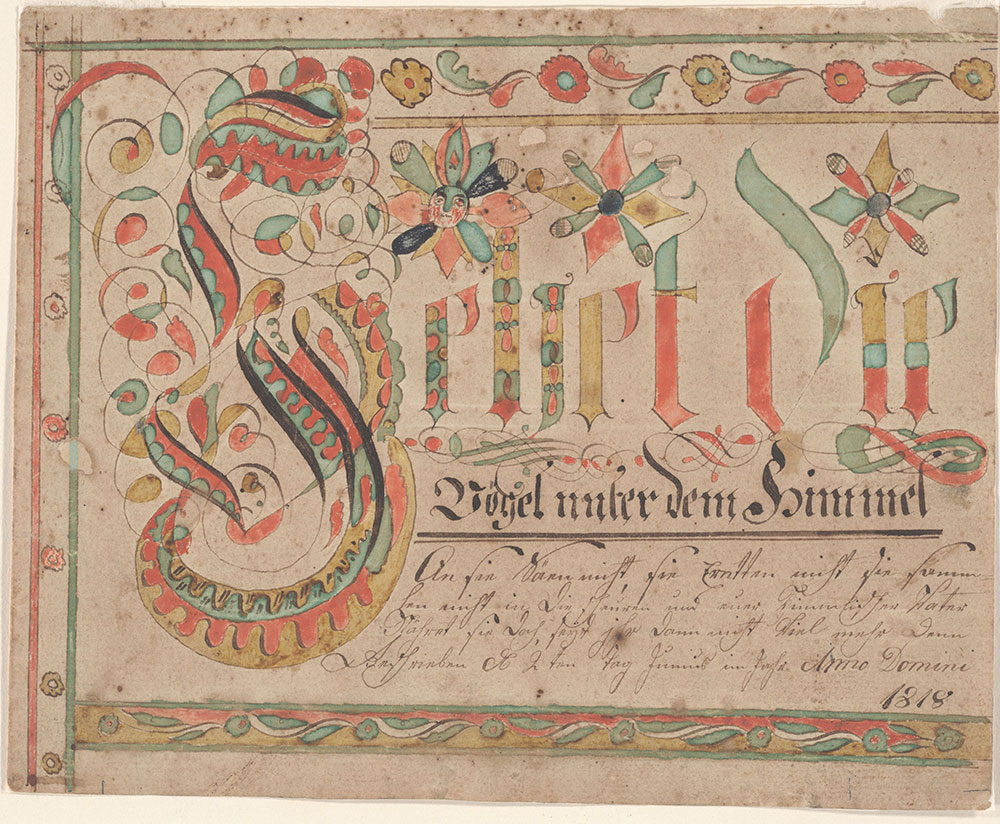 Sehet Die
Vögel unter dem Himmel
An sie Säen nicht sie Ernten nicht sie samm-
len nicht in die scheuren und euer himmlischer Vater
Nähret sie doch seyt ihr dann nicht Viel mehr denn
Geschrieben d 2 ten tag Junius im Jahr Anno Domini
1818